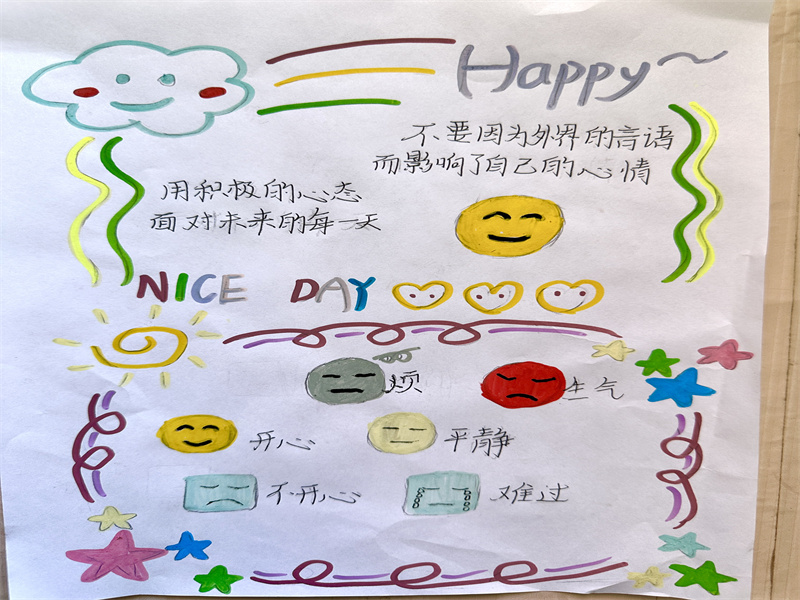 Happy~
不要因为外界的言语
而影响了自己的心情
用积极的心态
面对未来的每一天
NICE DAY
烦
生气
开心
平静
不开心
难过